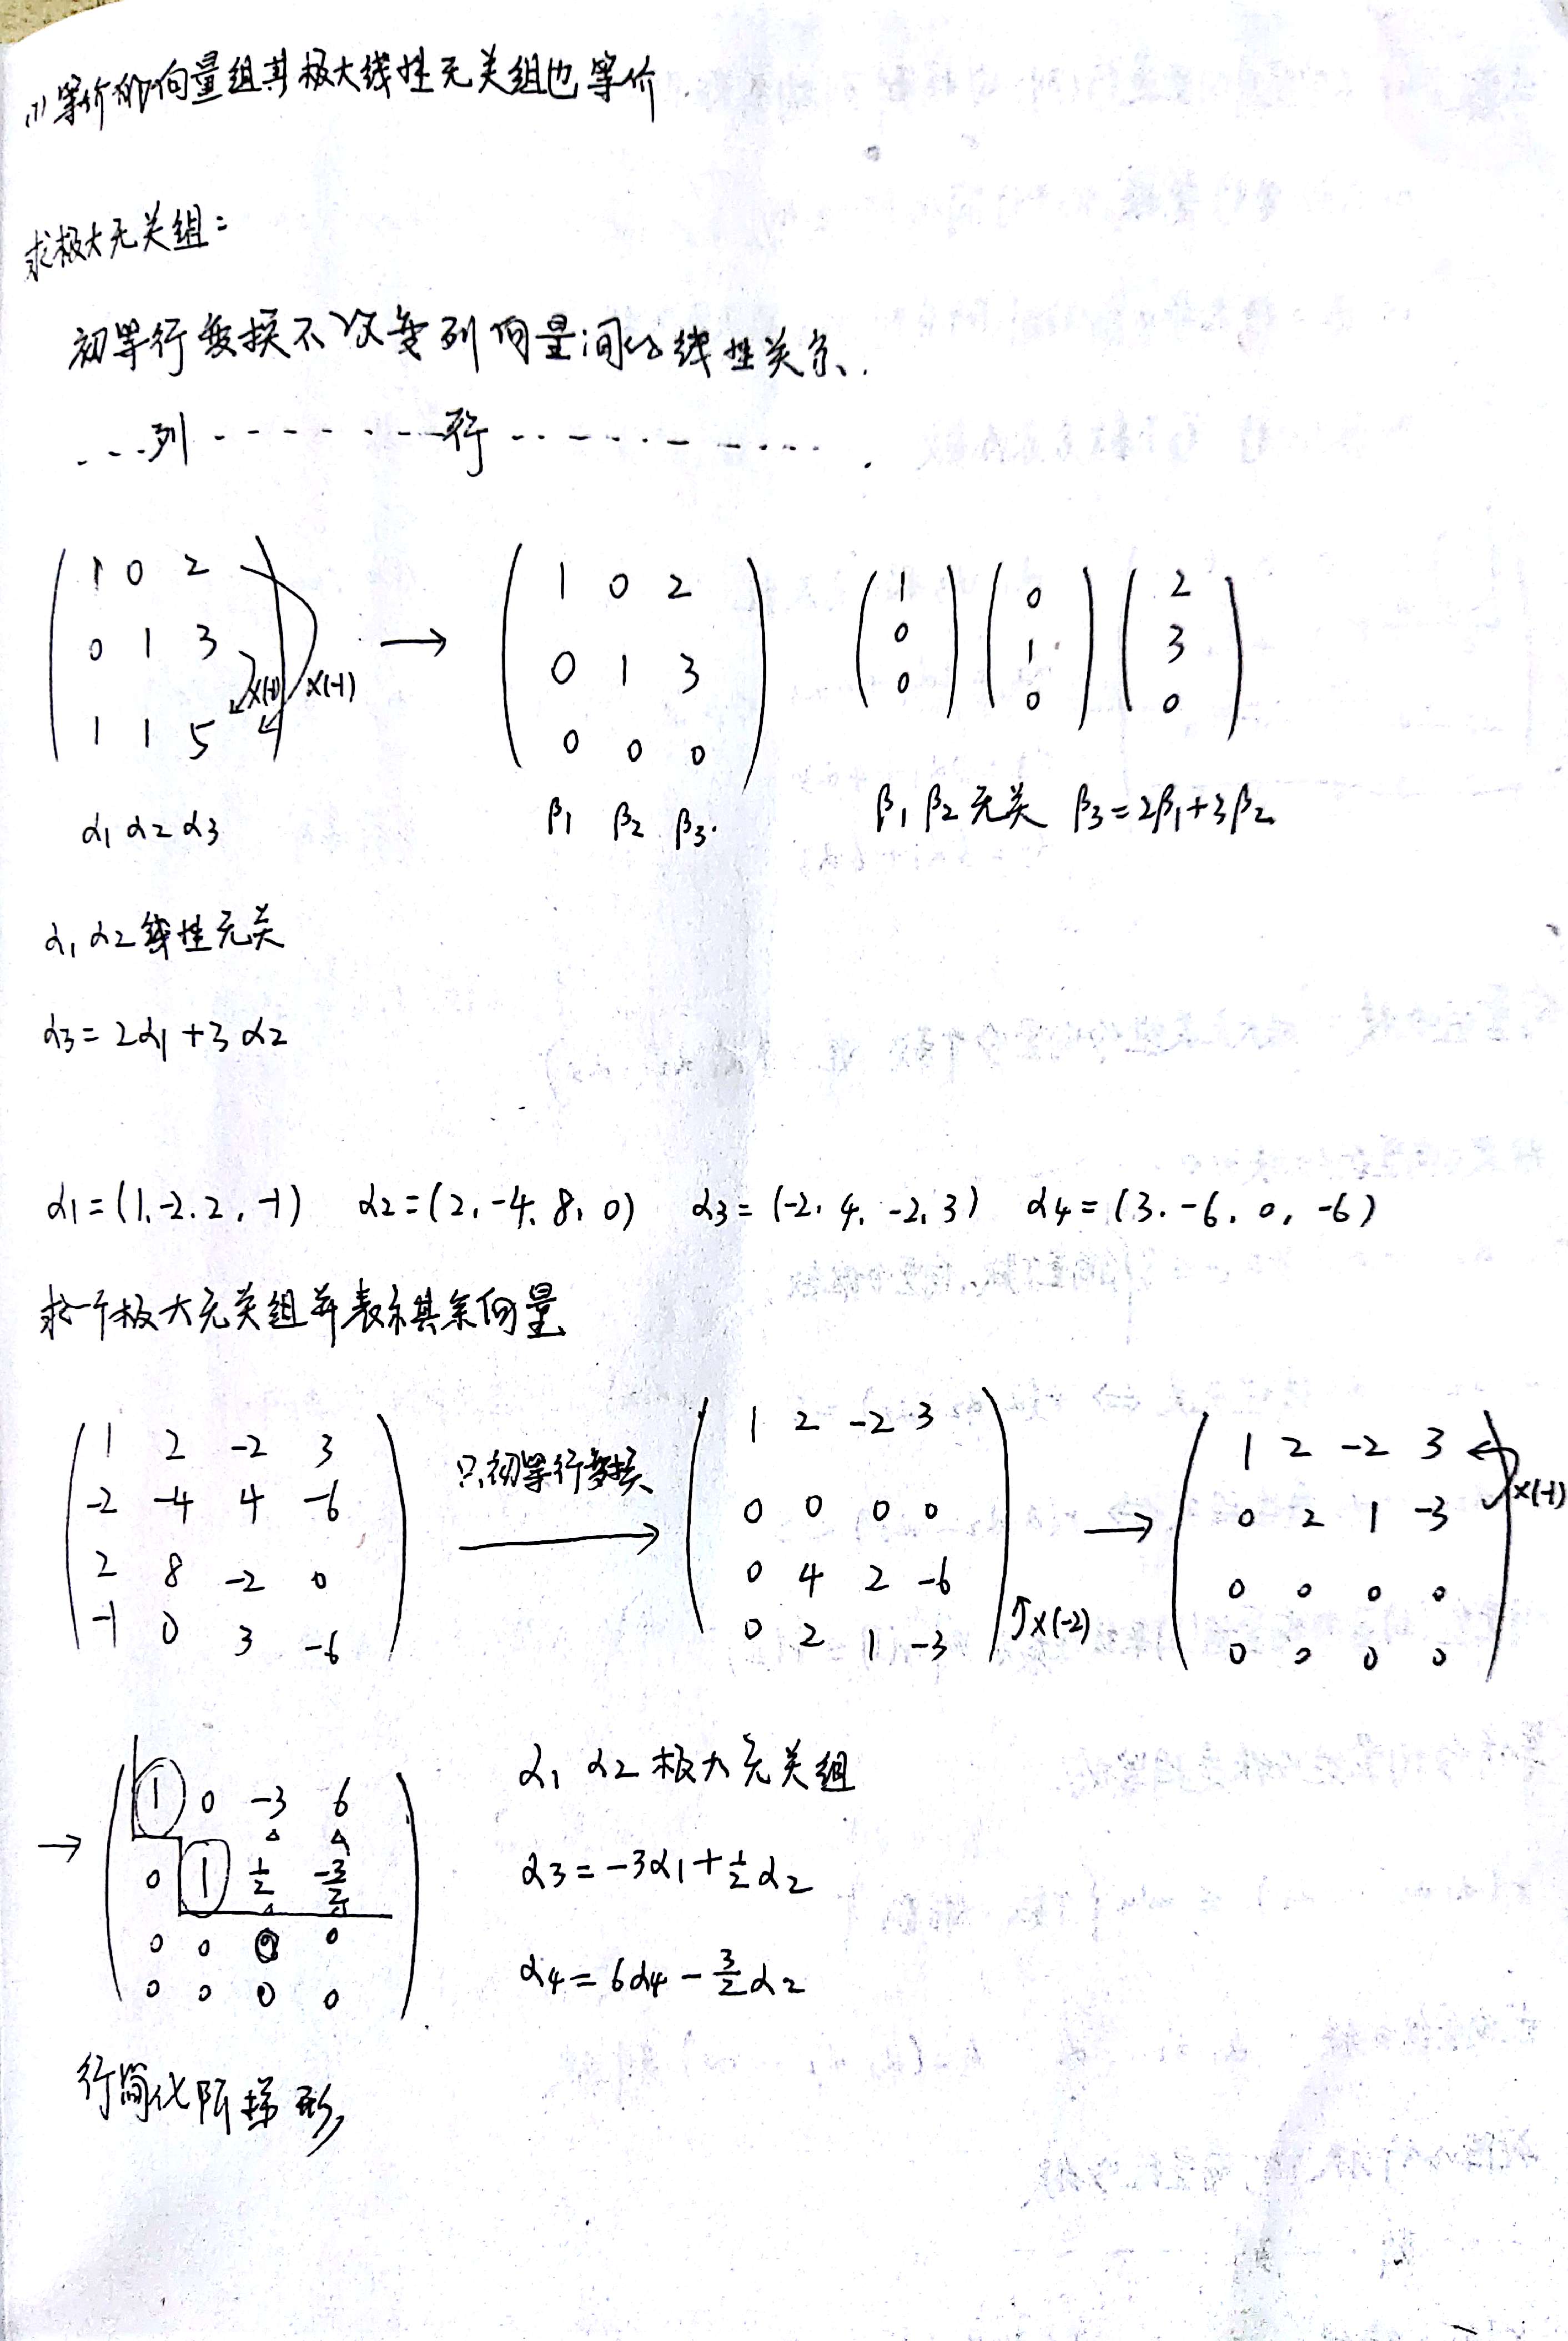 (1) 等价的向量组其极大线性无关组也等价
求极大无关组:
初等行变换不改变列向量间的线性关系.
...列.......行.......... .
1 0 2
0 1 3
1 1 5
×(-1) ×(-1)
→
1 0 2
0 1 3
0 0 0
1
0
0
0
1
0
2
3
0
α1 α2 α3
β1 β2 β3.
β1 β2 无关 β3=2β1+3β2
α1 α2 线性无关
α3=2α1+3α2
α1=(1,-2,2,-1) α2=(2,-4,8,0) α3=(-2,4,-2,3) α4=(3,-6,0,-6)
求一个极大无关组并表示其余向量
1 2 -2 3
-2 -4 4 -6
2 8 -2 0
-1 0 3 -6
只初等行变换
→
1 2 -2 3
0 0 0 0
0 4 2 -6
0 2 1 -3
×(-2)
→
1 2 -2 3
0 2 1 -3
0 0 0 0
0 0 0 0
×(-1)
→
1 0 -3 6
0 1 1/2 -3/2
0 0 0 0
0 0 0 0
α1 α2 极大无关组
α3=-3α1+1/2α2
α4=6α4-3/2α2
行简化阶梯形